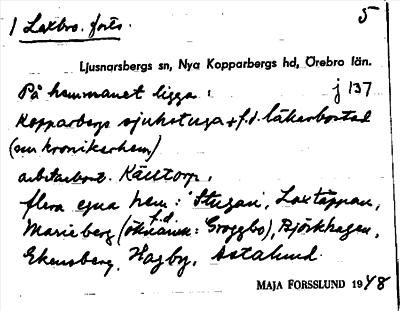 1 Laxbro. forts.
5
Ljusnarsbergs sn, Nya Kopparbergs hd, Örebro län.
På hemmanet ligga: j 137
Kopparbergs sjukstuga + f.d. läkarbostad
(nu kronikerhem)
arb. Källtorp,
flera egna hem: 'Stugan', Laxtäppan,
f.d.
Marieberg (öknamn: Groggbo), Björkhagen,
Ekensberg, Hagby, Astalund.
MAJA FORSSLUND 1948